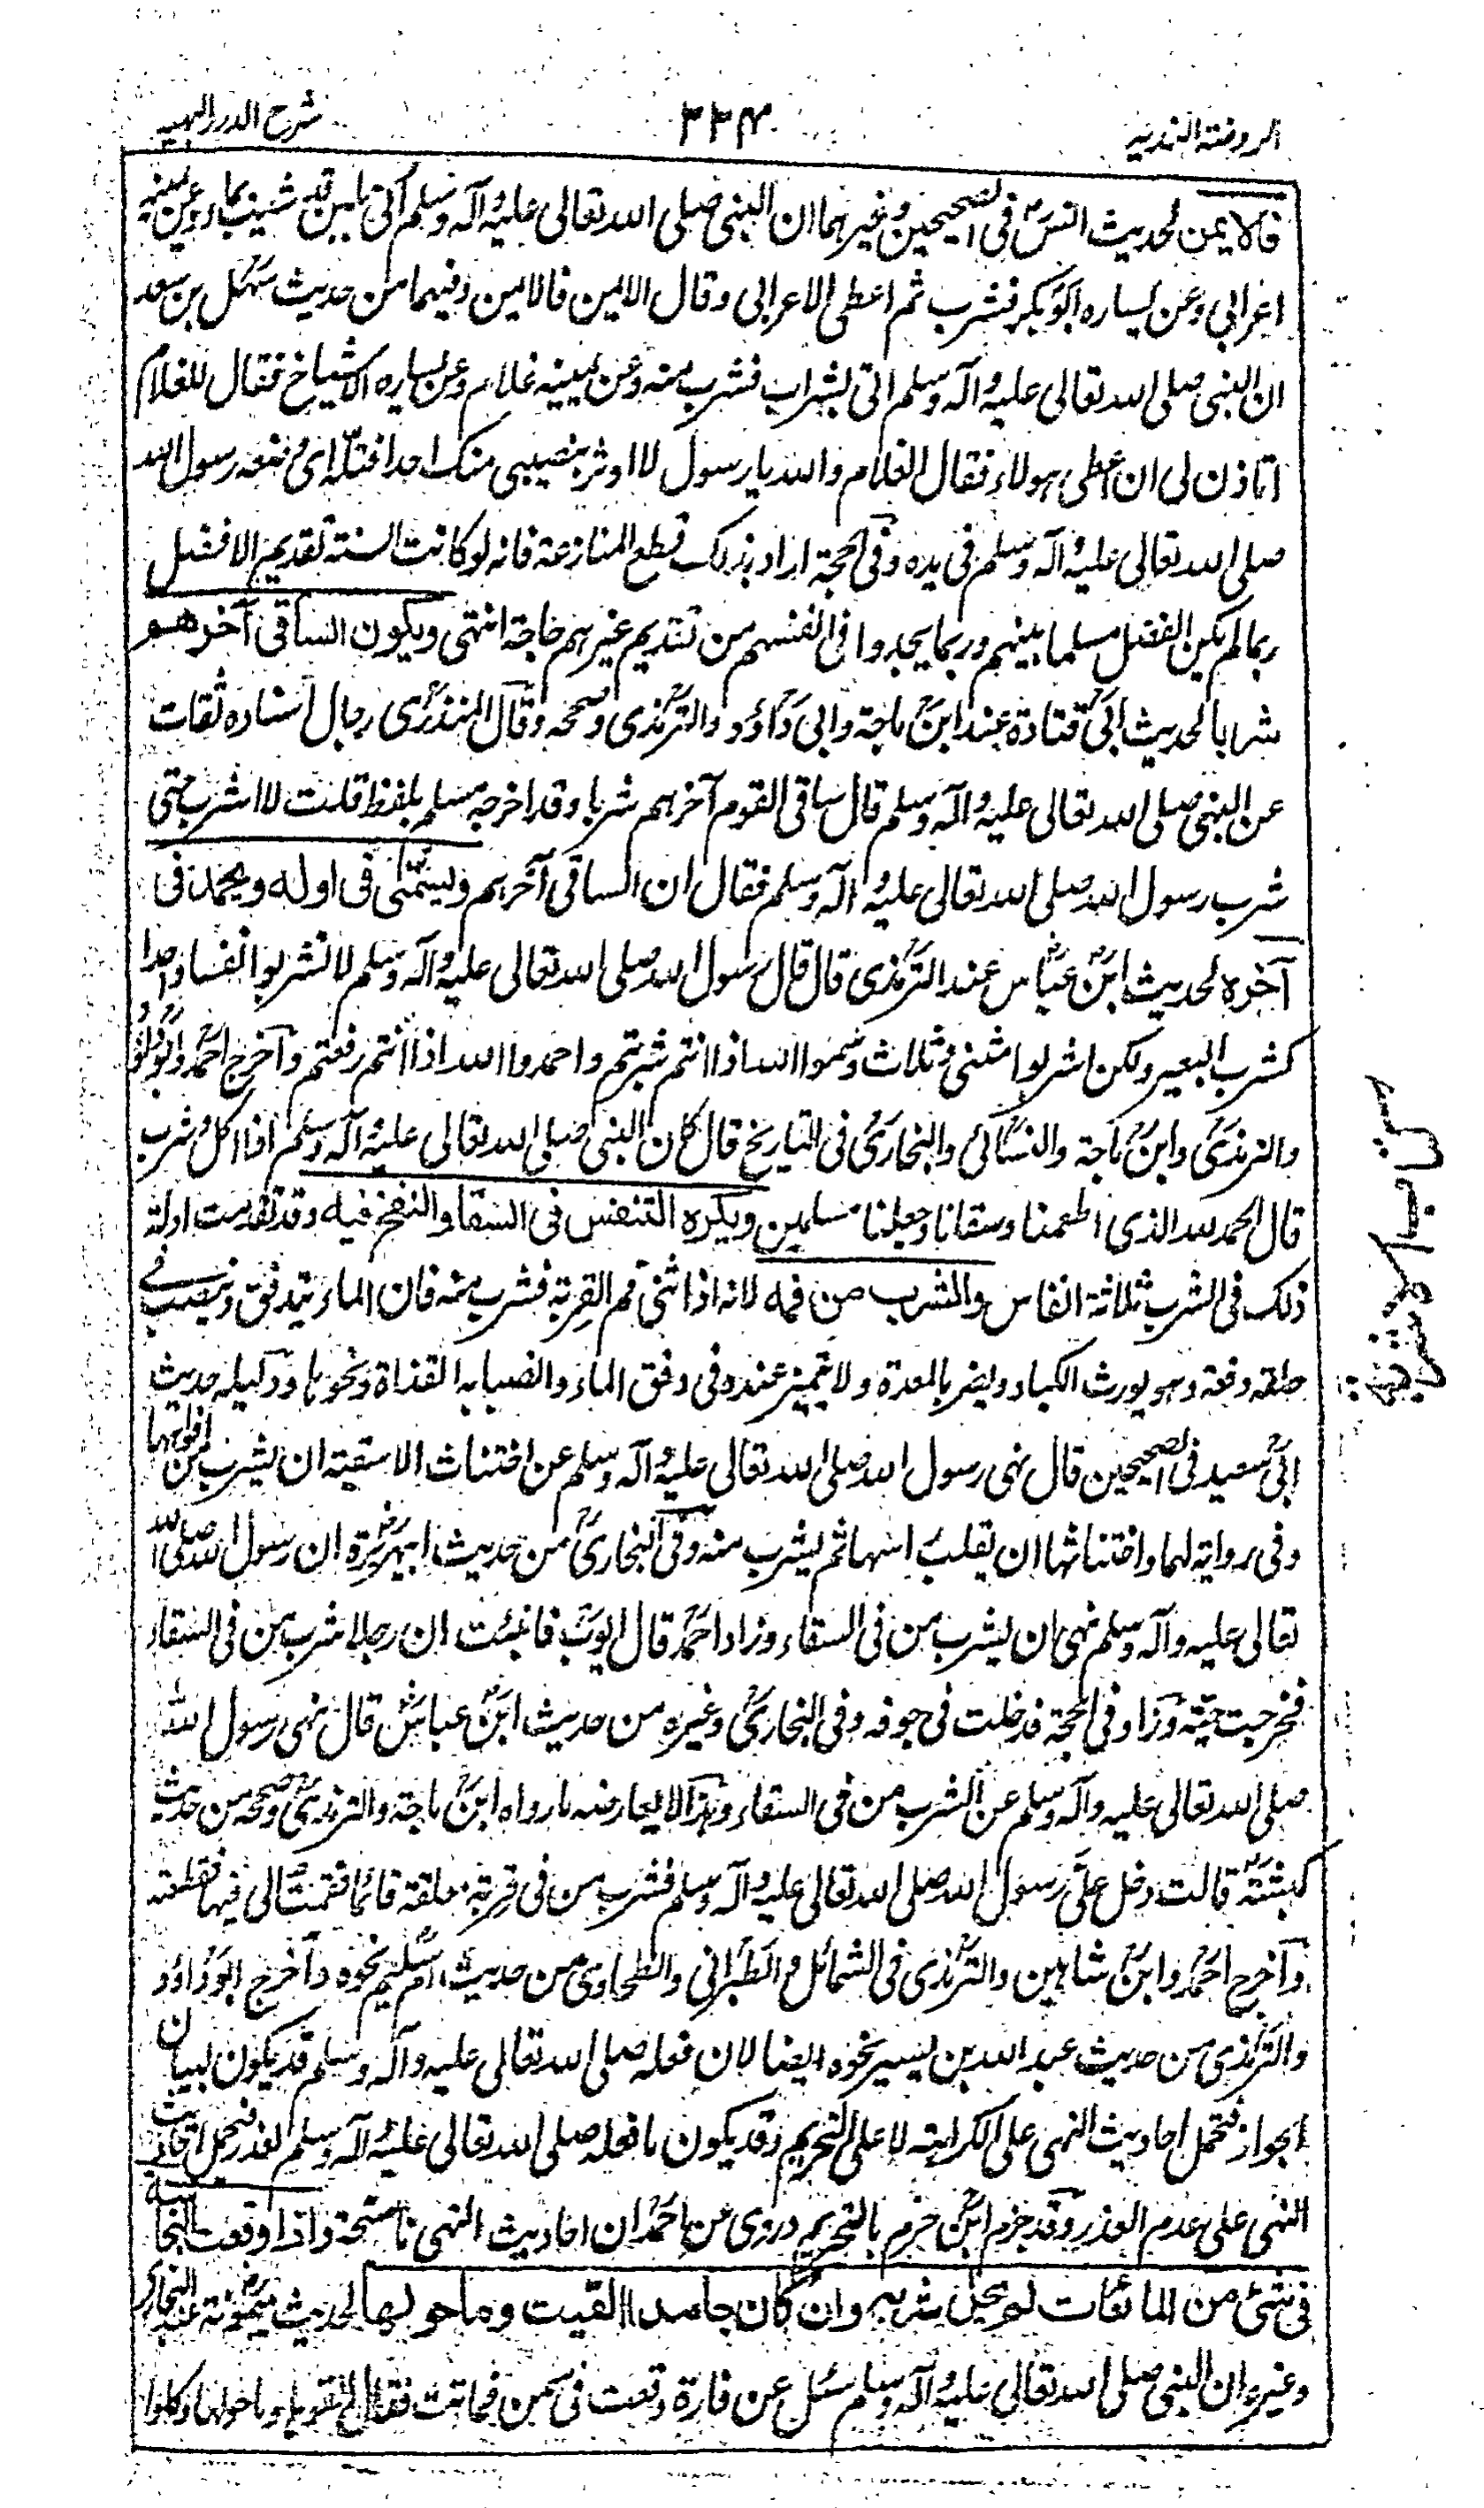 الروضة الندية ٣٣٤ شرح الدرر البهية
فالايمن لحديث انس في الصحيحين وغيرهما ان النبي صلى الله تعالى عليه وآله وسلم أتي بلبن قد شيب بماء وعن يمينه
اعرابي وعن يساره ابوبكر فشرب ثم اعطى الاعرابي وقال الايمن فالايمن وفيهما من حديث سهل بن سعد
ان النبي صلى الله تعالى عليه وآله وسلم اتي بشراب فشرب منه وعن يمينه غلام وعن يساره الاشياخ فقال للغلام
اتاذن لي ان اعطي هولاء فقال الغلام والله يا رسول لا اوثر بنصيبي منك احدا فتلّه اي وضعه رسول الله
صلى الله تعالى عليه وآله وسلم في يده وفي الحجة اراد بذلك قطع المنازعة فانه لو كانت السنة تقديم الافضل
ربما لم يكن الفضل مسلما بينهم وربما يجدوا في انفسهم من تقديم غيرهم حاجة انتهى ويكون الساقي آخرهم
شربا لحديث ابي قتادة عند ابن ماجة وابي داؤد والترمذي وصححه وقال المنذري رجال اسناده ثقات
عن النبي صلى الله تعالى عليه وآله وسلم قال ساقي القوم آخرهم شربا وقد اخرجه مسلم بلفظ قلت لا اشرب حتى
شرب رسول الله صلى الله تعالى عليه وآله وسلم فقال ان الساقي آخرهم ويسمّي في اوله ويحمد في
آخره لحديث ابن عباس عند الترمذي قال قال رسول الله صلى الله تعالى عليه وآله وسلم لا تشربوا نفسا واحدا
كشرب البعير ولكن اشربوا مثنى وثلاث وسموا الله اذا انتم شربتم واحمدوا الله اذا انتم رفعتم وآخرج احمد وابوداؤد
والترمذي وابن ماجة والنسائي والبخاري في التاريخ قال كان النبي صلى الله تعالى عليه وآله وسلم اذا اكل وشرب
قال الحمد لله الذي اطعمنا وسقانا وجعلنا مسلمين ويكره التنفس في السقاء والنفخ فيه وقد تقدمت ادلة
ذلك في الشرب ثلاثة انفاس والشرب من فمه لانه اذا ثنى فم القربة فشرب منه فان الماء يتدفق وينصب في
حلقه دفعة وهو يورث الكباد ويضر بالمعدة ولا يتميز عنده في دفق الماء وانصبابه القذاة ونحوها ودليله حديث
ابي سعيد في الصحيحين قال نهى رسول الله صلى الله تعالى عليه وآله وسلم عن اختناث الاسقية ان يشرب من افواهها
وفي رواية لهما واختناثها ان يقلب راسها ثم يشرب منه وفي البخاري من حديث ابي هريرة ان رسول الله صلى الله
تعالى عليه وآله وسلم نهى ان يشرب من في السقاء وزاد احمد قال ايوب فانبئت ان رجلا شرب من في السقاء
فخرجت حيّة وزاد في الحجة فدخلت في جوفه وفي البخاري وغيره من حديث ابن عباس قال نهى رسول الله
صلى الله تعالى عليه وآله وسلم عن الشرب من في السقاء وهذا لا يعارضه ما رواه ابن ماجة والترمذي وصححه من حديث
كبشة قالت دخل عليّ رسول الله صلى الله تعالى عليه وآله وسلم فشرب من في قربة معلقة قائما فقمت الى فيها فقطعته
وآخرج احمد وابن شاهين والترمذي في الشمائل والطبراني والطحاوي من حديث ام سليم نحوه وآخرج ابوداؤد
والترمذي من حديث عبد الله بن نحوه ايضا لان فعله صلى الله تعالى عليه وآله وسلم قد يكون لبيان
الجواز فتحمل احاديث النهي على الكراهة لا على التحريم وقد يكون ما فعله صلى الله تعالى عليه وآله وسلم لعذر فتحمل احاديث
النهي على عدم العذر وقد جزم ابن حزم بالتحريم وروي عن احمد ان احاديث النهي ناسخة واذا وقعت النجاسة
في شئ من المائعات لم يحل شربه وان كان جامدا القيت وما حولها لحديث ميمونة عند البخاري
وغيره ان النبي صلى الله تعالى عليه وآله وسلم سئل عن فارة وقعت في سمن فماتت فقال القوها وما حولها وكلوا
كتاب الاشربة